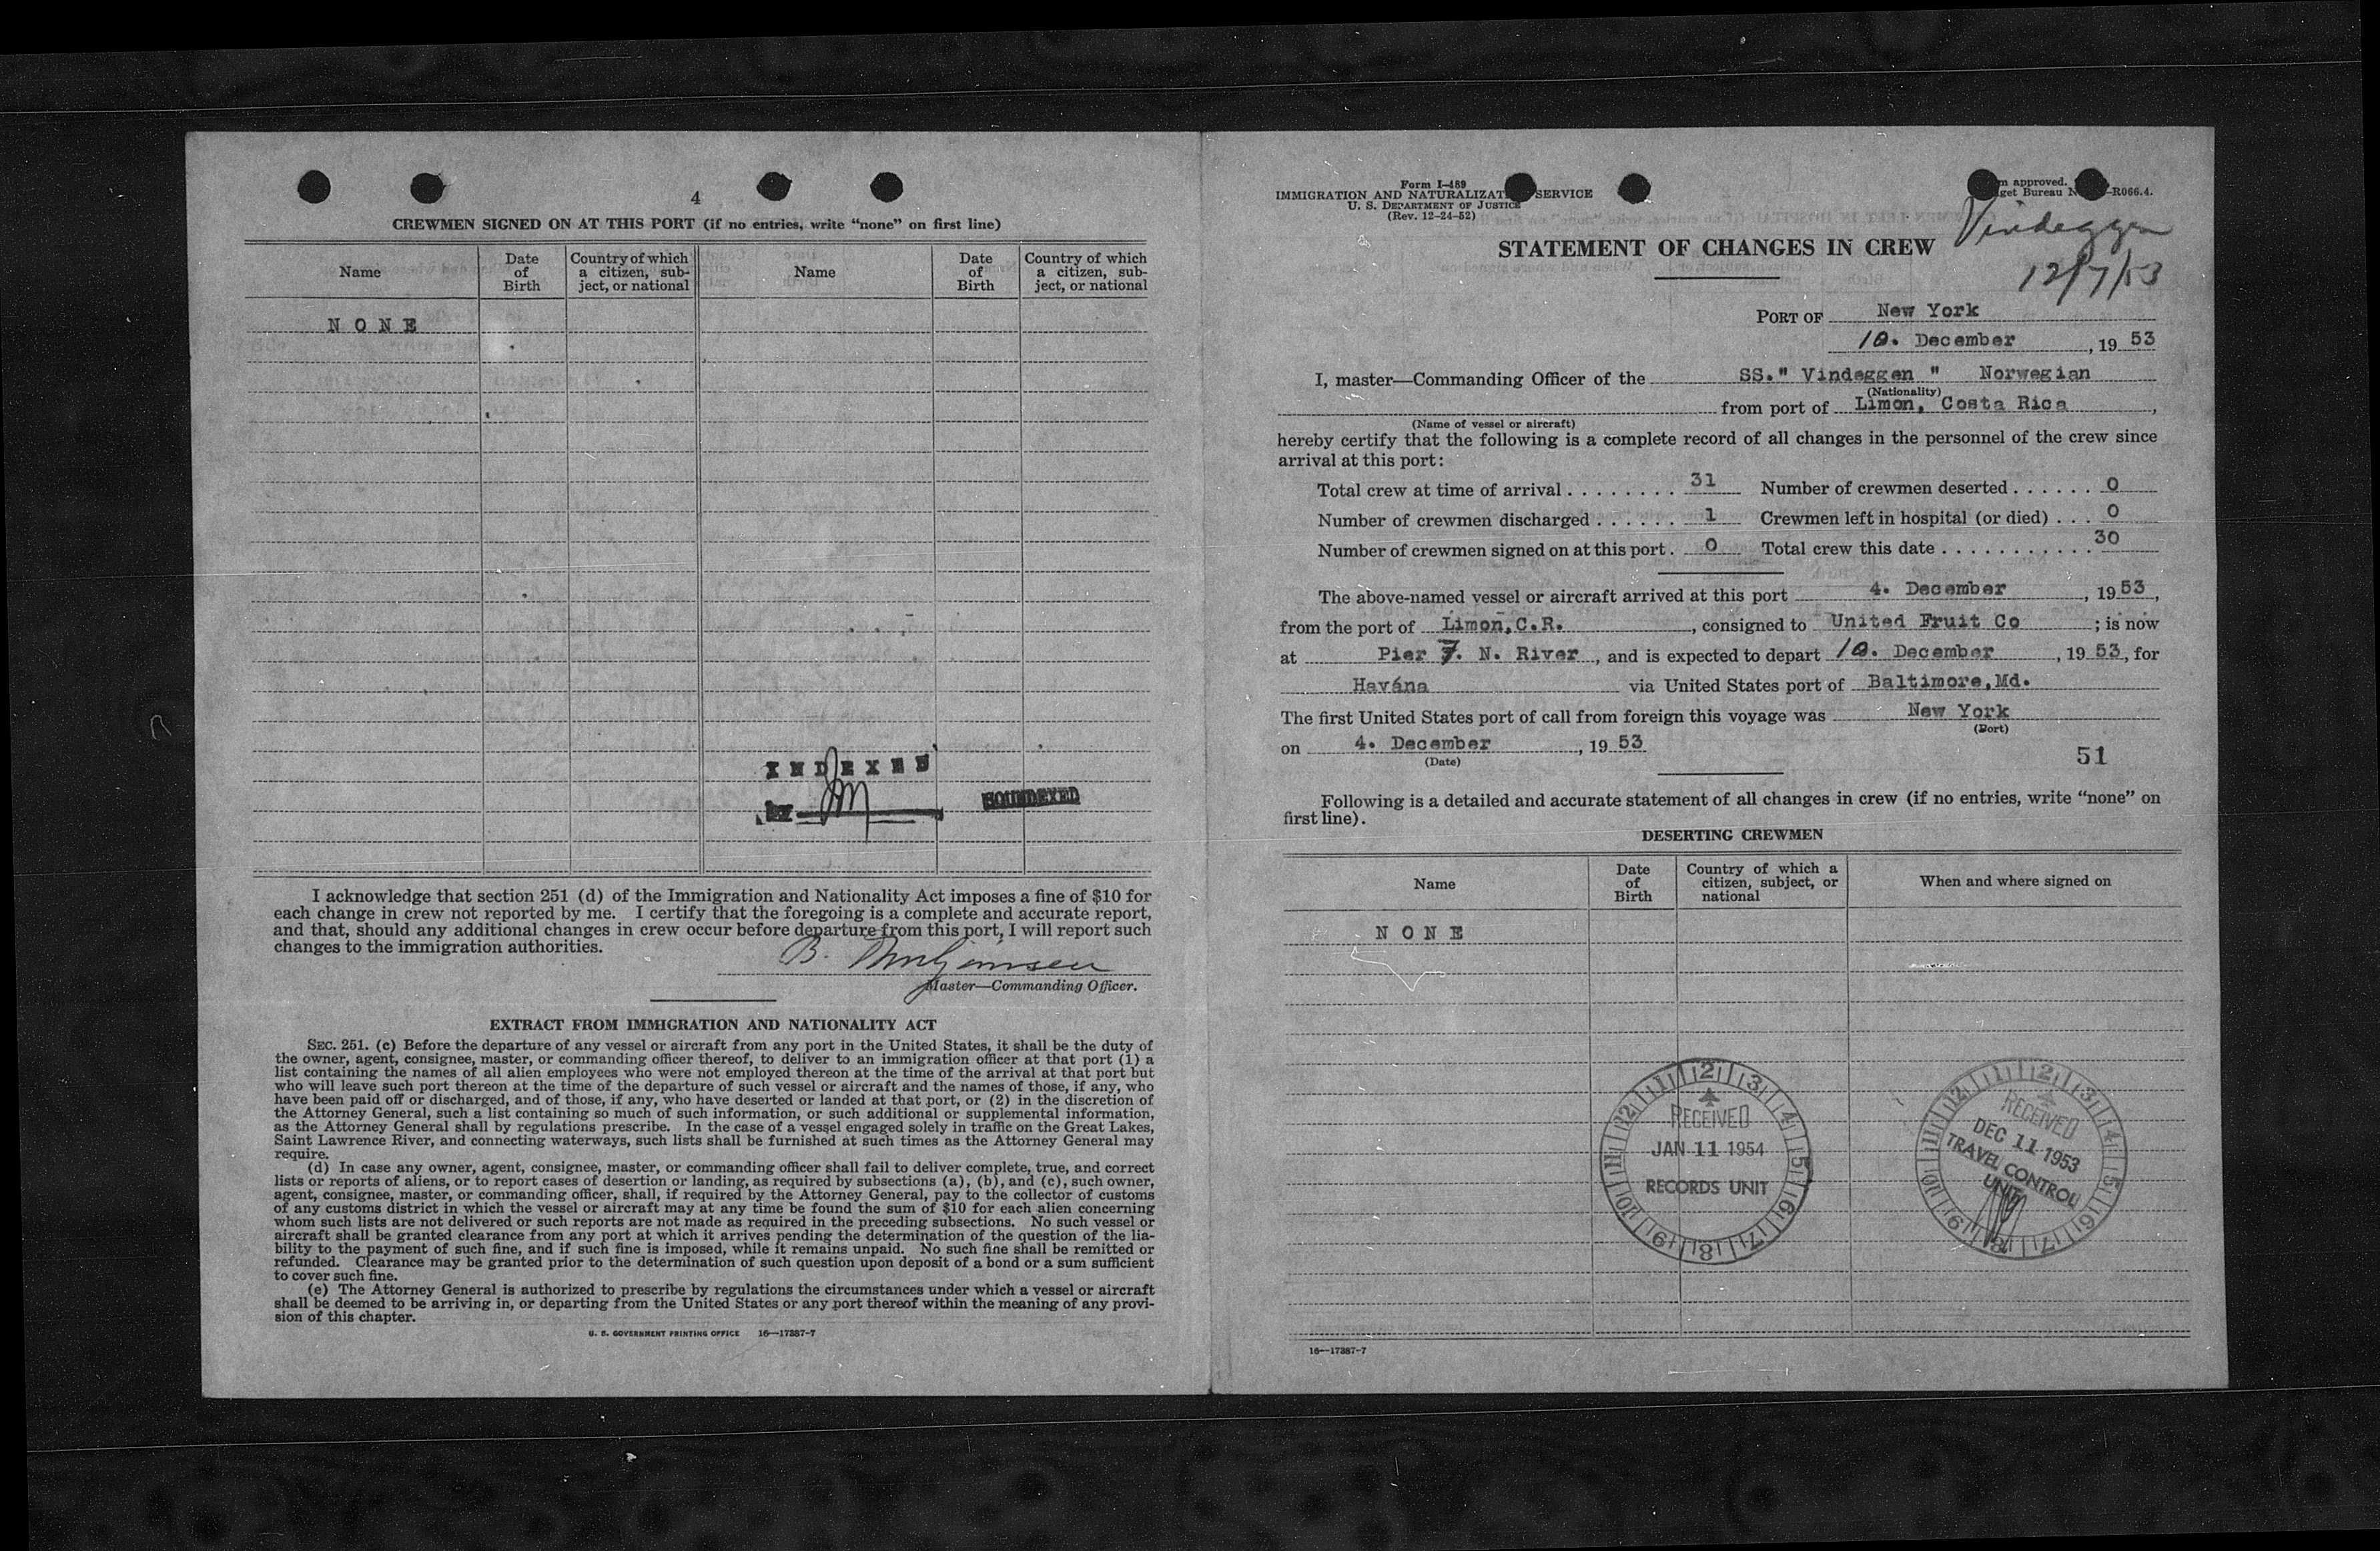 4
CREWMEN SIGNED ON AT THIS PORT (if no entries, write “none” on first line)
Name
Date of Birth
Country of which a citizen, sub-ject, or national
Name
Date of Birth
Country of which a citizen, sub-ject, or national
N O N E
INDEXED
by
SOUNDEXED
I acknowledge that section 251 (d) of the Immigration and Nationality Act imposes a fine of $10 for
each change in crew not reported by me. I certify that the foregoing is a complete and accurate report,
and that, should any additional changes in crew occur before departure from this port, I will report such
changes to the immigration authorities.
B.
Master—Commanding Officer.
EXTRACT FROM IMMIGRATION AND NATIONALITY ACT
SEC. 251. (c) Before the departure of any vessel or aircraft from any port in the United States, it shall be the duty of
the owner, agent, consignee, master, or commanding officer thereof, to deliver to an immigration officer at that port (1) a
list containing the names of all alien employees who were not employed thereon at the time of the arrival at that port but
who will leave such port thereon at the time of the departure of such vessel or aircraft and the names of those, if any, who
have been paid off or discharged, and of those, if any, who have deserted or landed at that port, or (2) in the discretion of
the Attorney General, such a list containing so much of such information, or such additional or supplemental information,
as the Attorney General shall by regulations prescribe. In the case of a vessel engaged solely in traffic on the Great Lakes,
Saint Lawrence River, and connecting waterways, such lists shall be furnished at such times as the Attorney General may
require.
(d) In case any owner, agent, consignee, master, or commanding officer shall fail to deliver complete, true, and correct
lists or reports of aliens, or to report cases of desertion or landing, as required by subsections (a), (b), and (c), such owner,
agent, consignee, master, or commanding officer, shall, if required by the Attorney General, pay to the collector of customs
of any customs district in which the vessel or aircraft may at any time be found the sum of $10 for each alien concerning
whom such lists are not delivered or such reports are not made as required in the preceding subsections. No such vessel or
aircraft shall be granted clearance from any port at which it arrives pending the determination of the question of the lia-
bility to the payment of such fine, and if such fine is imposed, while it remains unpaid. No such fine shall be remitted or
refunded. Clearance may be granted prior to the determination of such question upon deposit of a bond or a sum sufficient
to cover such fine.
(e) The Attorney General is authorized to prescribe by regulations the circumstances under which a vessel or aircraft
shall be deemed to be arriving in, or departing from the United States or any port thereof within the meaning of any provi-
sion of this chapter.
U. S. GOVERNMENT PRINTING OFFICE 16—17387-7
Form I-489
IMMIGRATION AND NATURALIZAT SERVICE
U. S. DEPARTMENT OF JUSTICE
(Rev. 12-24-52)
m approved.
get Bureau N -R066.4.
Vindeggen
12/7/53
STATEMENT OF CHANGES IN CREW
PORT OF New York
10. December, 19 53
I, master—Commanding Officer of the SS." Vindeggen " Norwegian
(Nationality)
from port of Limon, Costa Rica,
(Name of vessel or aircraft)
hereby certify that the following is a complete record of all changes in the personnel of the crew since
arrival at this port:
Total crew at time of arrival . . . . . . . . 31 Number of crewmen deserted . . . . . . 0
Number of crewmen discharged . . . . . . 1 Crewmen left in hospital (or died) . . . 0
Number of crewmen signed on at this port . 0 Total crew this date . . . . . . . . . . . . 30
The above-named vessel or aircraft arrived at this port 4. December, 19 53,
from the port of Limon, C.R., consigned to United Fruit Co ; is now
at Pier 7. N. River, and is expected to depart 10. December, 19 53, for
Havána via United States port of Baltimore, Md.
The first United States port of call from foreign this voyage was New York
(Port)
on 4. December, 19 53
(Date)
51
Following is a detailed and accurate statement of all changes in crew (if no entries, write “none” on
first line).
DESERTING CREWMEN
Name
Date of Birth
Country of which a citizen, subject, or national
When and where signed on
N O N E
1 2 3 4 5 6 7 8 9 10 11 12
RECEIVED
JAN 11 1954
RECORDS UNIT
1 2 3 4 5 6 7 8 9 10 11 12
RECEIVED
DEC 11 1953
TRAVEL CONTROL
UNIT
16—17387-7